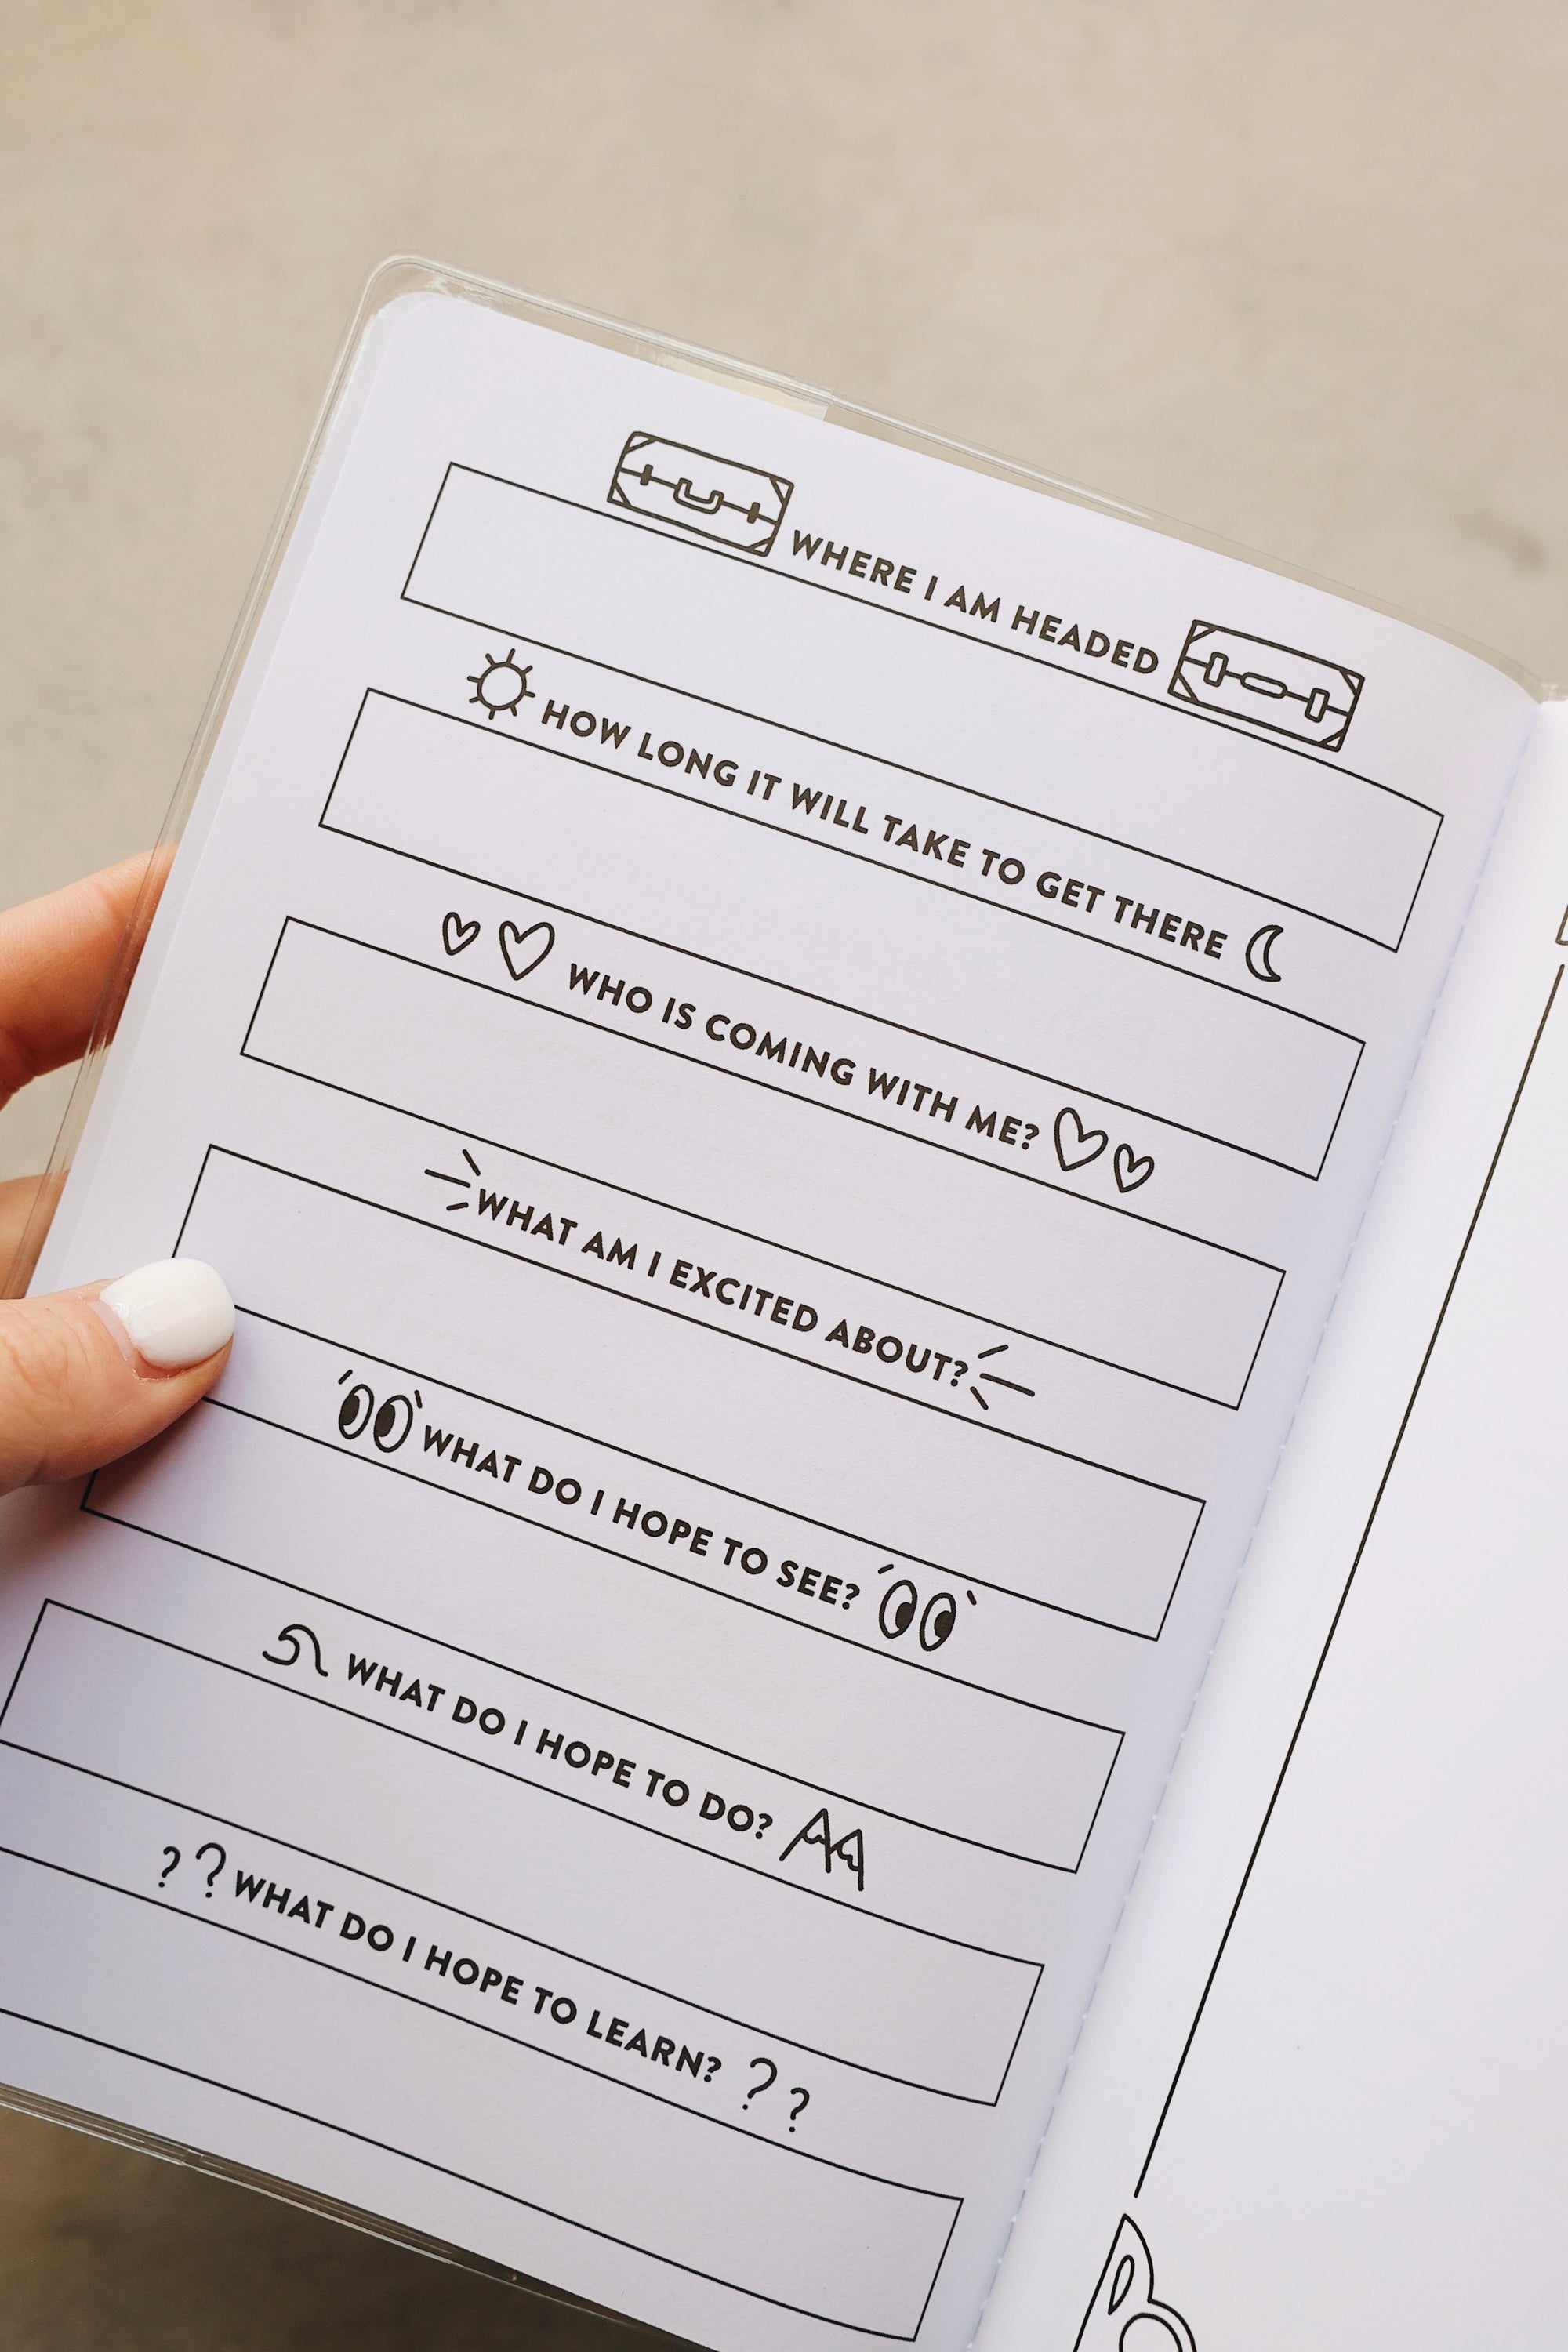 WHERE I AM HEADED
HOW LONG IT WILL TAKE TO GET THERE
WHO IS COMING WITH ME?
WHAT AM I EXCITED ABOUT?
WHAT DO I HOPE TO SEE?
WHAT DO I HOPE TO DO?
? ? WHAT DO I HOPE TO LEARN? ? ?